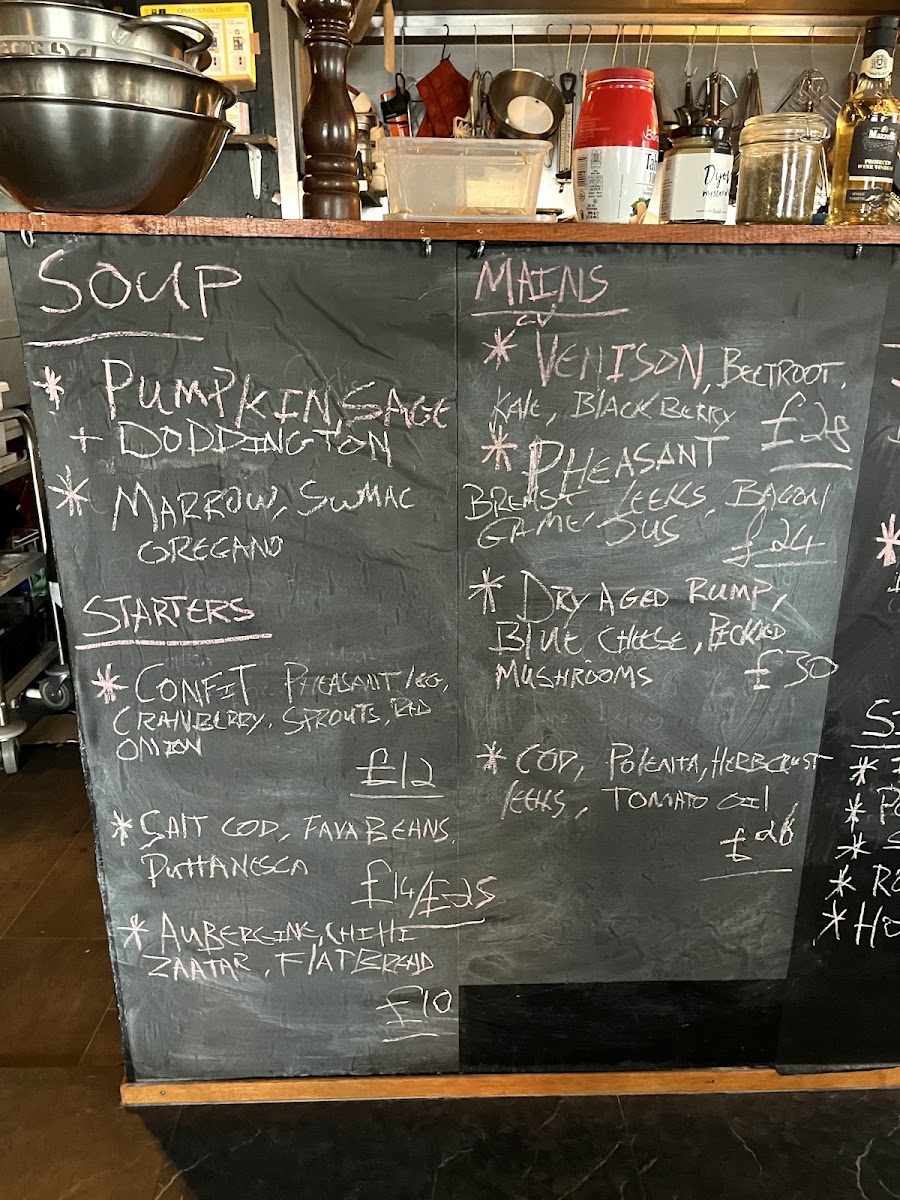 OPERATIONAL CHART
Dyer
Mazzetti
SOUP
* PUMPKIN, SAGE
+ DODDINGTON
* MARROW, SUMAC
OREGANO
STARTERS
* CONFIT PHEASANT LEG,
CRANBERRY, SPROUTS, RED
ONION
£12
* SALT COD, FAVA BEANS,
PUTTANESCA
£14/£25
* AUBERGINE, CHILLI
ZAATAR, FLATBREAD
£10
MAINS
* VENISON, BEETROOT,
KALE, BLACKBERRY
£28
* PHEASANT
BREAST LEEKS, BACON/
GAME JUS
£24
* DRY AGED RUMP,
BLUE CHEESE, PICKLED
MUSHROOMS
£30
* COD, POLENTA, HERB CRUST
LEEKS, TOMATO OIL
£26
*
*
* P
* S
* RO
* HO